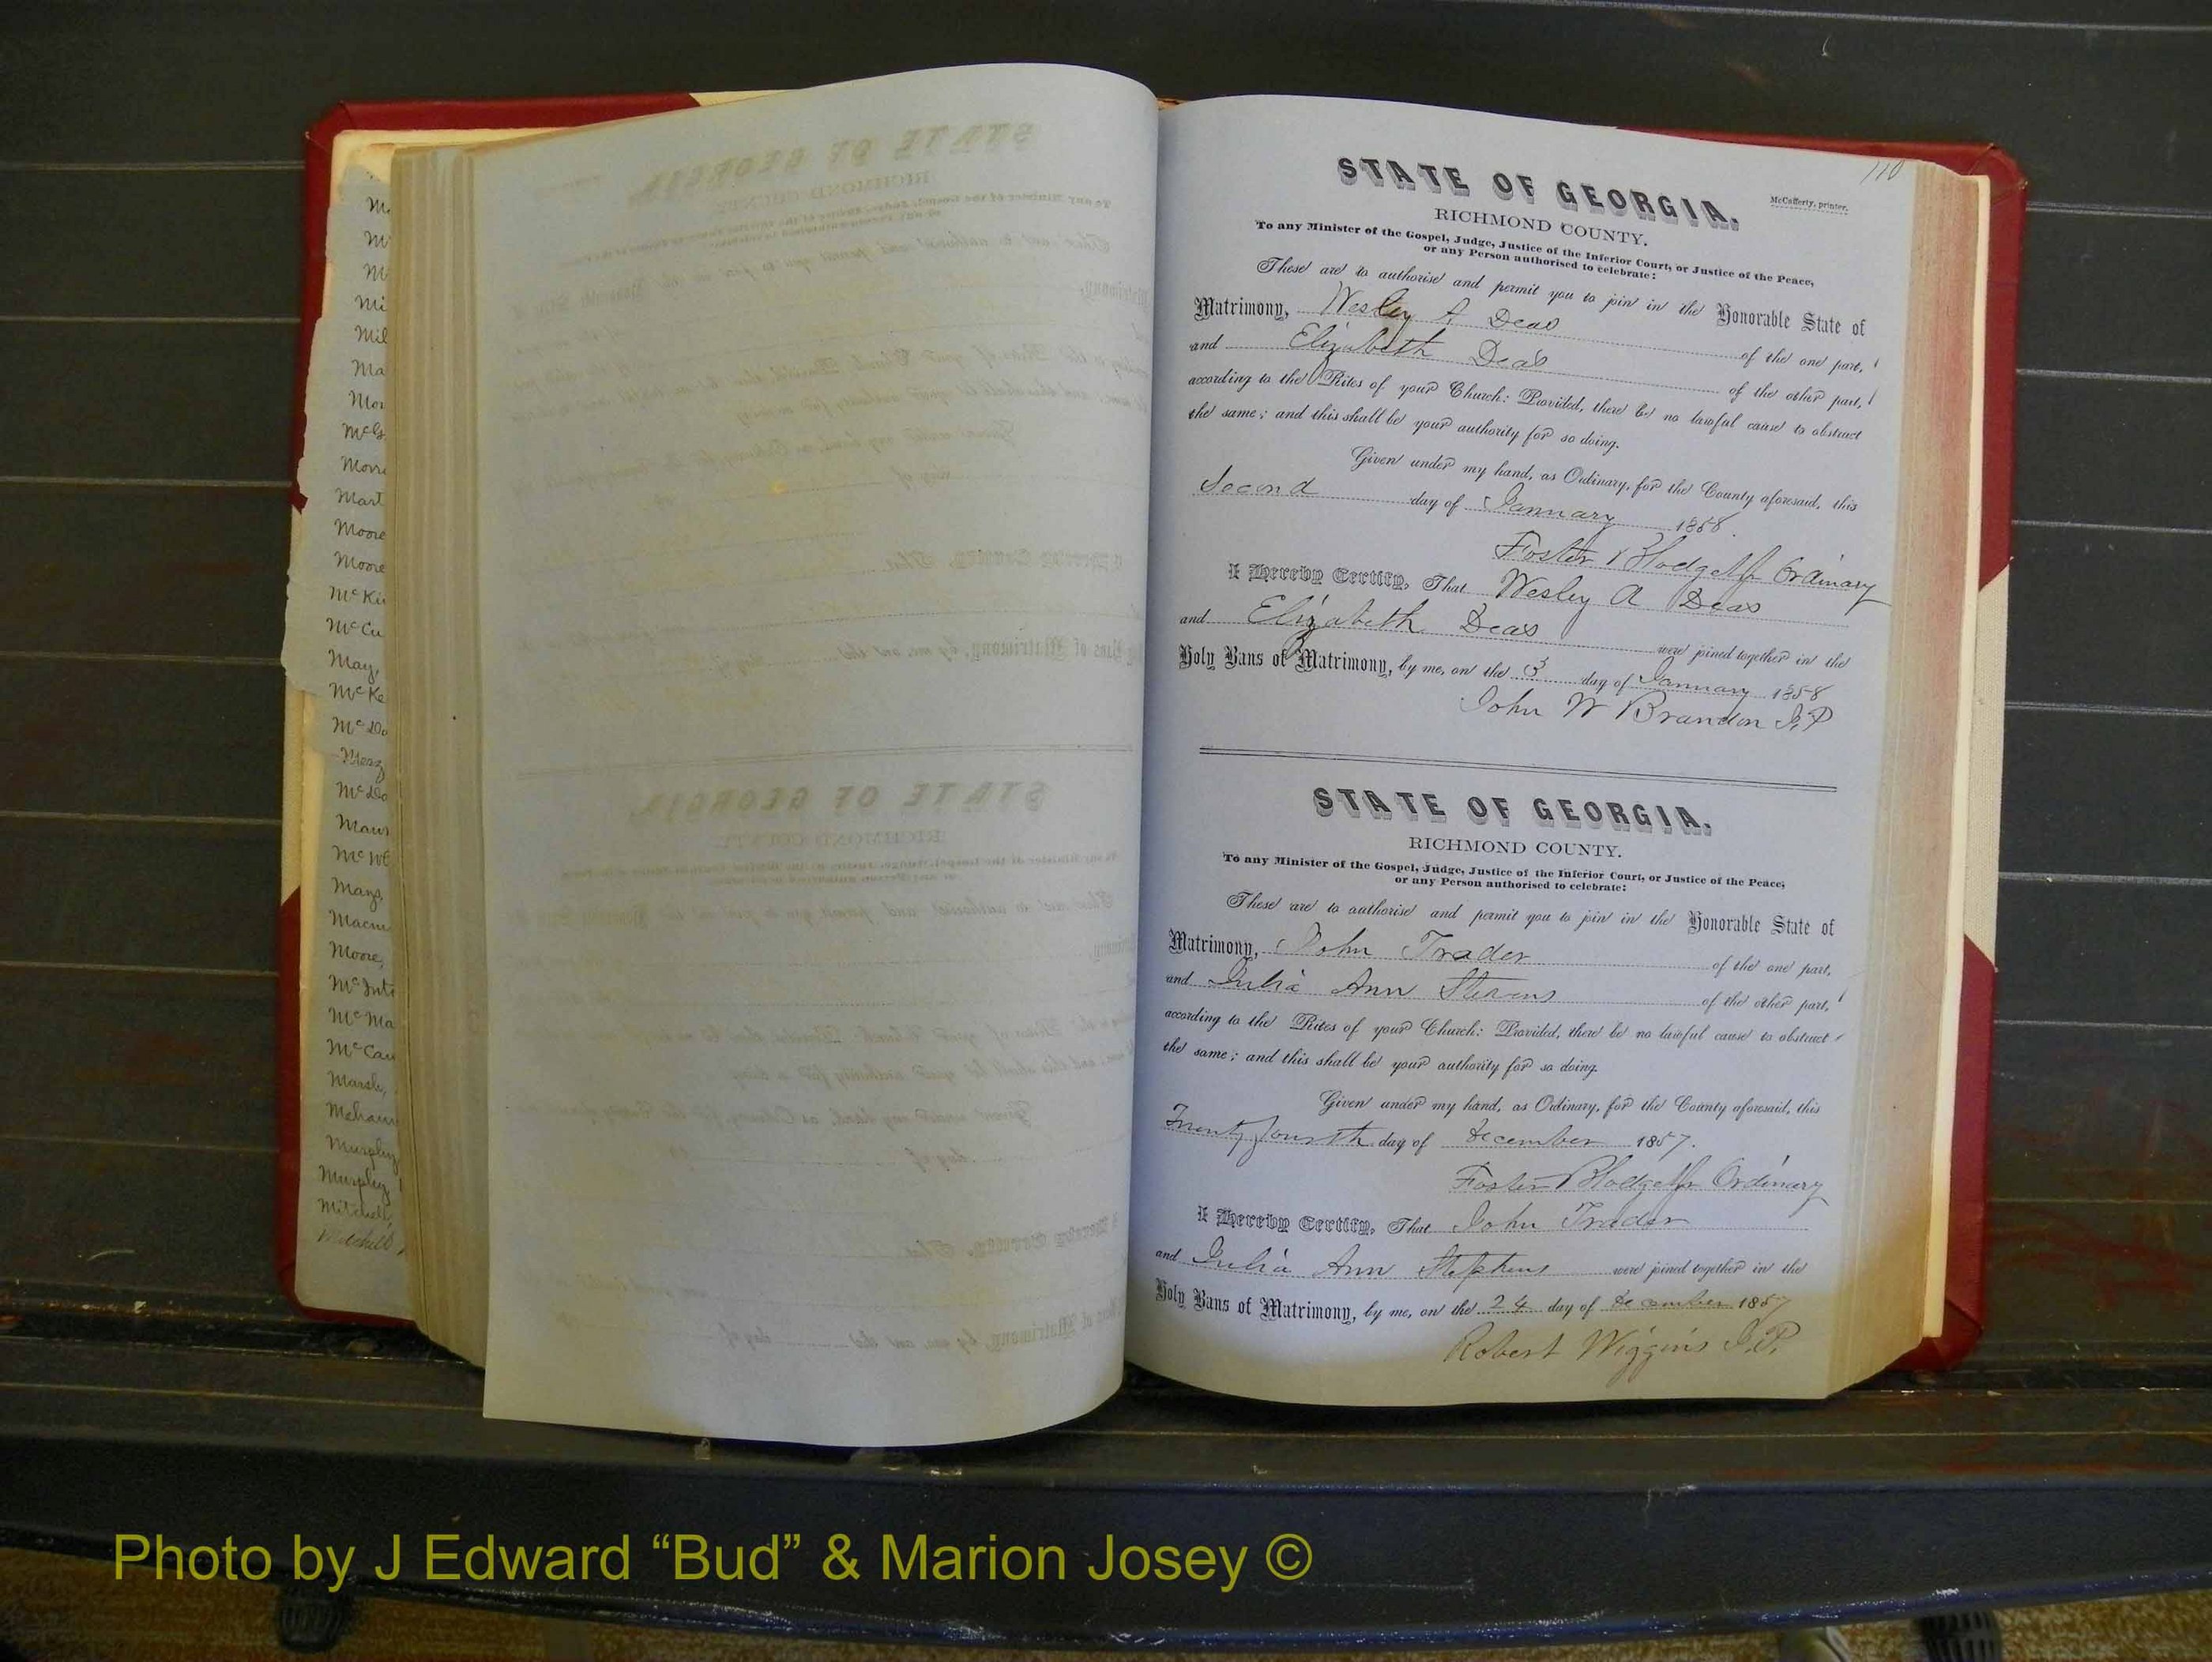 M
M
M
Mi
Mil
Ma
Mor
McG
Morr
Mart
Moore
Moore
McKi
McCu
May,
McKe
McDo
McDo
Maur
Mays,
Macm
Moore,
McInt
McMa
McCau
Marsh,
Murphy
Murphy
Mitchell,
Mitchell
110
STATE OF GEORGIA.
McCafferty, printer.
RICHMOND COUNTY.
To any Minister of the Gospel, Judge, Justice of the Inferior Court, or Justice of the Peace,
or any Person authorised to celebrate:
These are to authorise and permit you to join in the Honorable State of
Matrimony, Wesley A Deas of the one part,
and Elizabeth Deas of the other part,
according to the Rites of your Church: Provided, there be no lawful cause to obstruct
the same; and this shall be your authority for so doing.
Given under my hand, as Ordinary, for the County aforesaid, this
Second day of January 1858
Foster Blodget Jr Ordinary
I Hereby Certify, That Wesley A Deas
and Elizabeth Deas were joined together in the
Holy Bans of Matrimony, by me, on the 3 day of January 1858
John W Brandon J.P
STATE OF GEORGIA.
RICHMOND COUNTY.
To any Minister of the Gospel, Judge, Justice of the Inferior Court, or Justice of the Peace,
or any Person authorised to celebrate:
These are to authorise and permit you to join in the Honorable State of
Matrimony, John Trader of the one part,
and Julia Ann Stevens of the other part,
according to the Rites of your Church: Provided, there be no lawful cause to obstruct
the same; and this shall be your authority for so doing.
Given under my hand, as Ordinary, for the County aforesaid, this
Twenty fourth day of December 1857.
Foster Blodget Jr Ordinary
I Hereby Certify, That John Trader
and Julia Ann Stephens were joined together in the
Holy Bans of Matrimony, by me, on the 24 day of December 1857
Robert Wiggins J.P.
Photo by J Edward “Bud” & Marion Josey ©